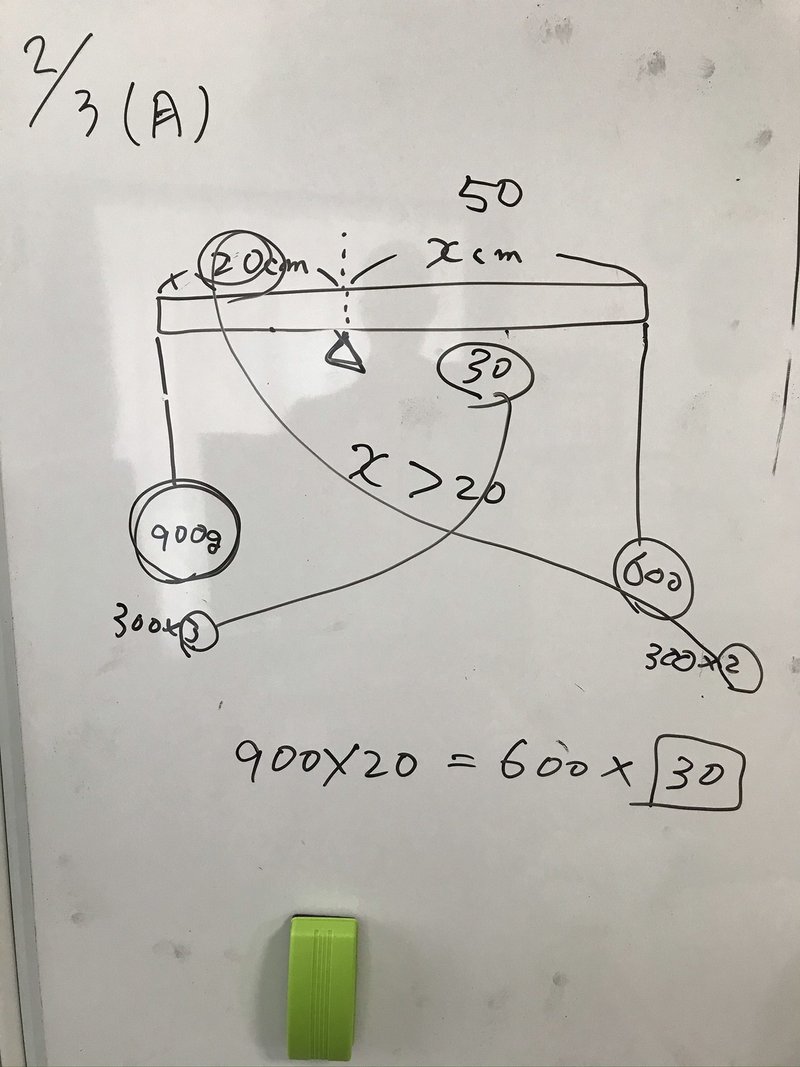 2/3 (A)
50
20cm
xcm
30
x > 20
900g
600
300×3
300×2
900×20 = 600×30